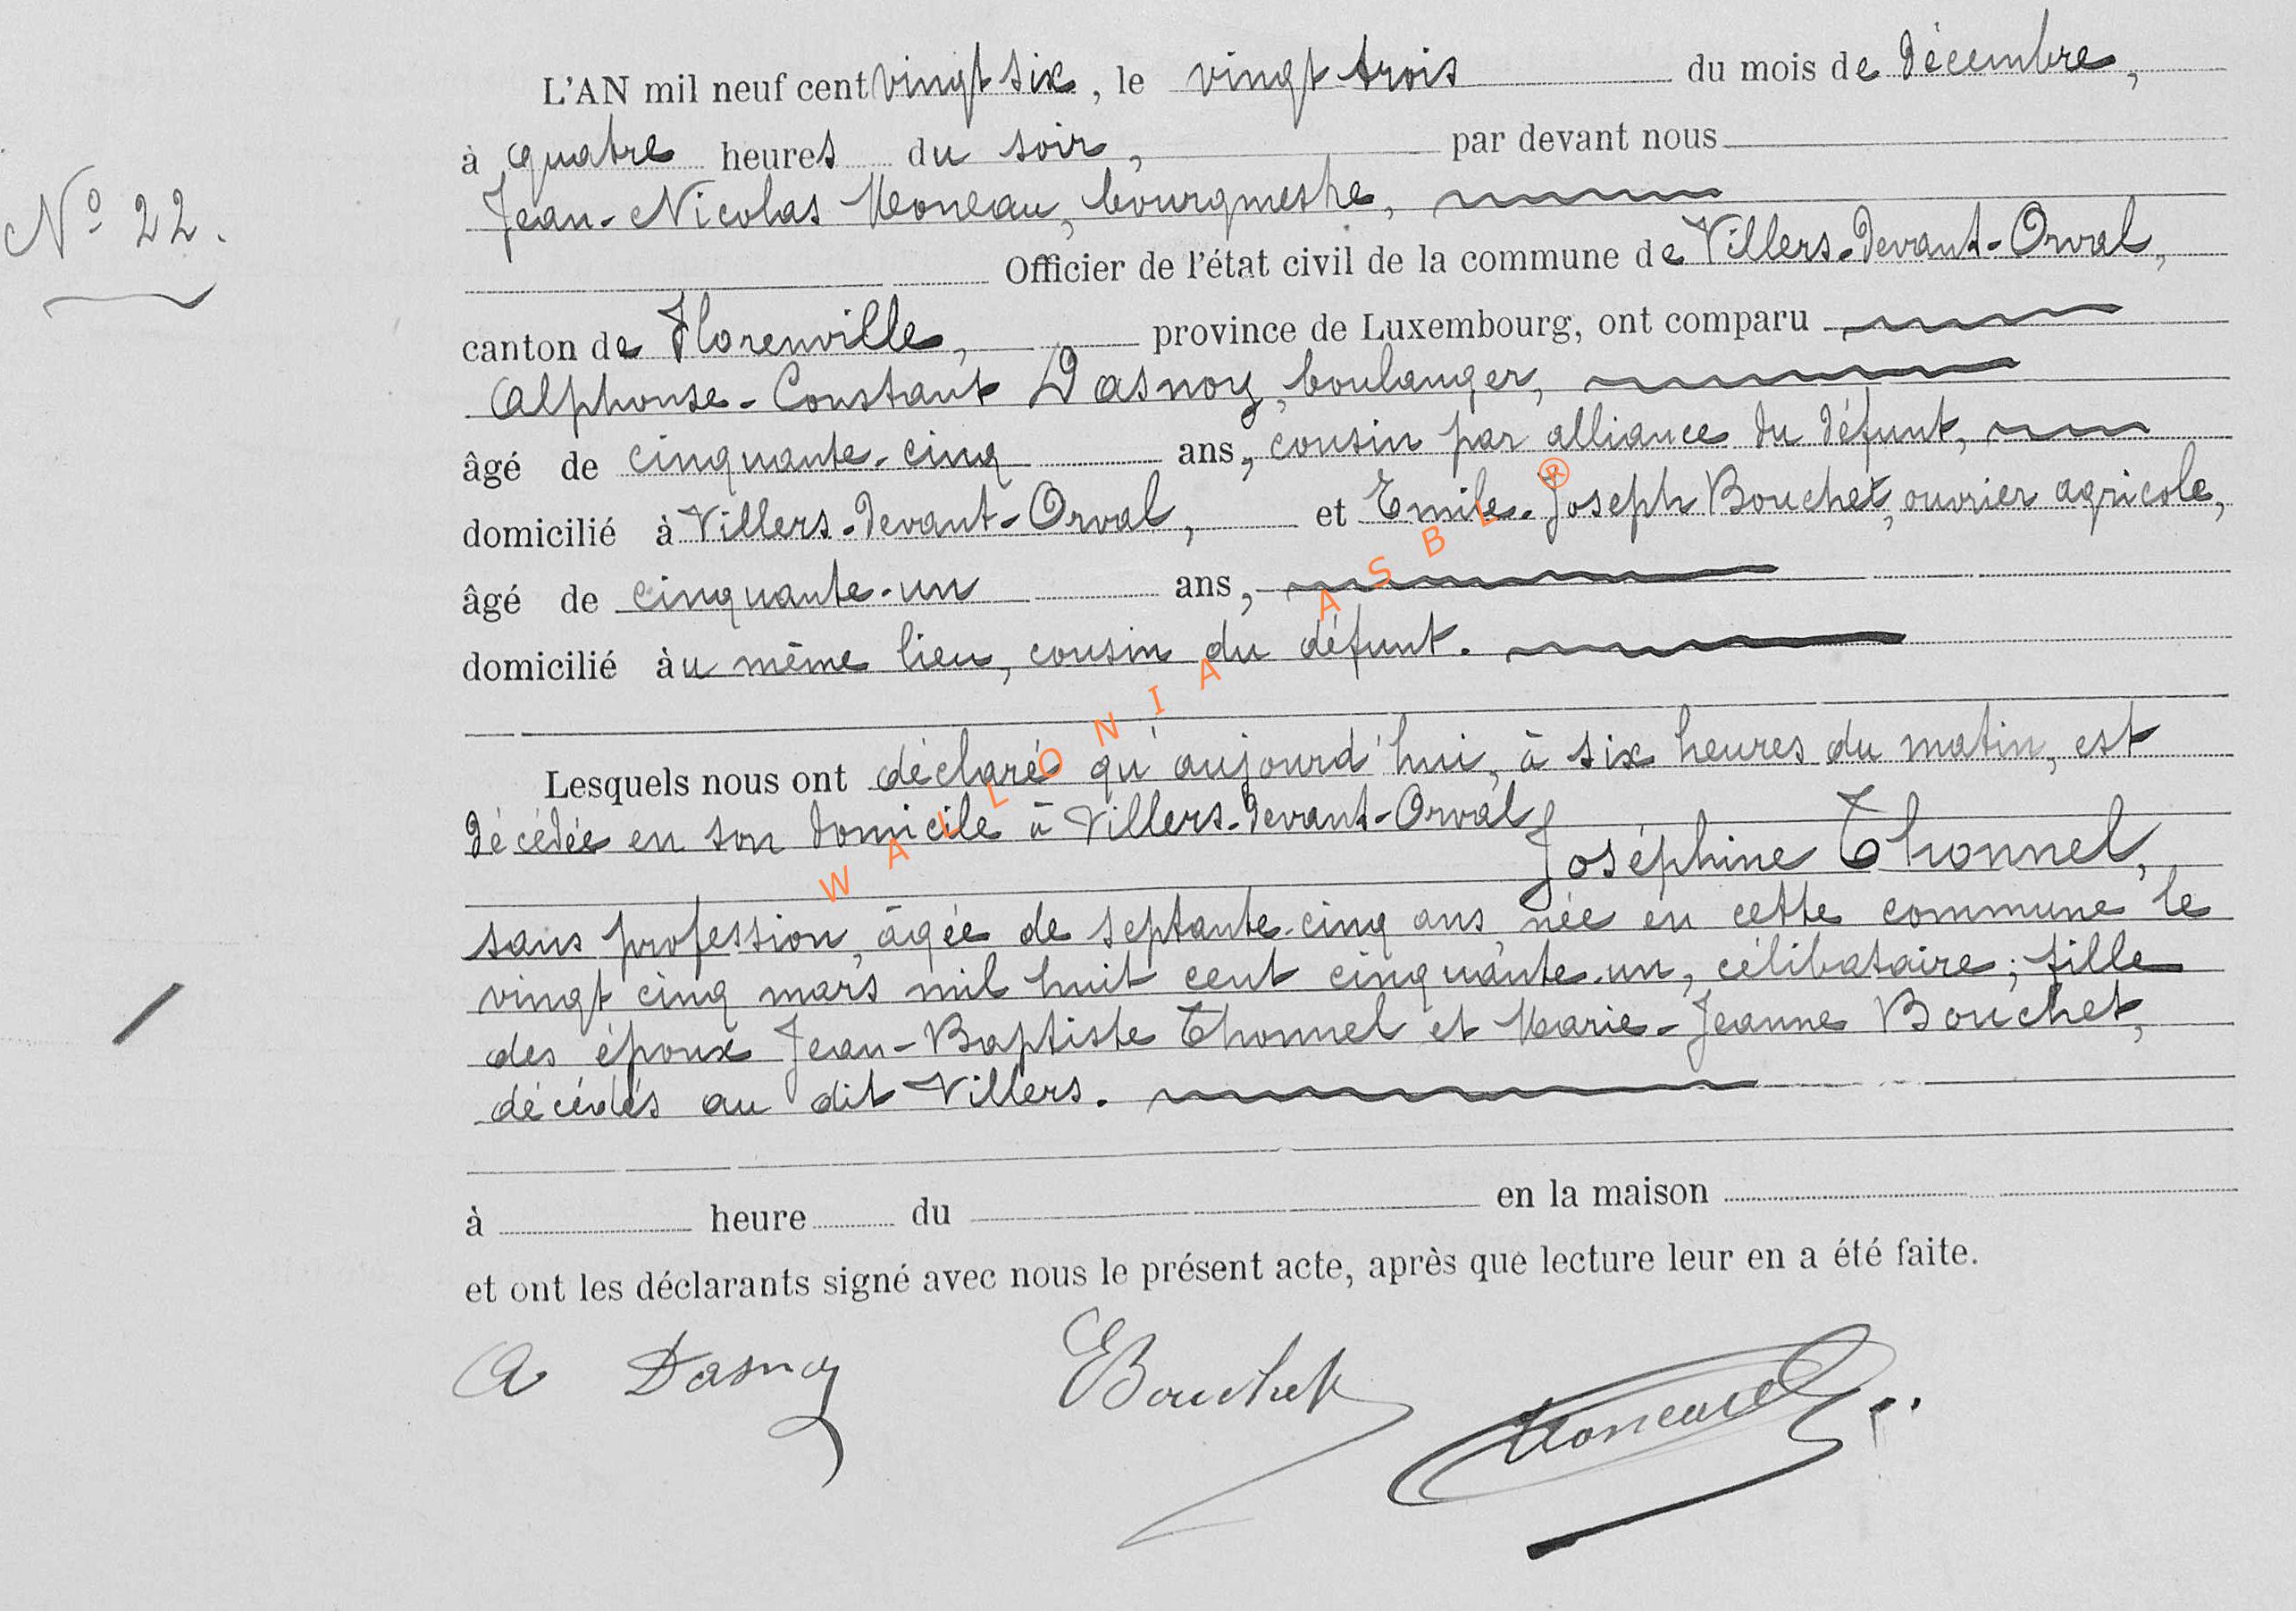 L'AN mil neuf cent vingt six, le vingt-trois du mois de décembre,
à quatre heures du soir, par devant nous
Nº 22.
Jean-Nicolas Moneau, bourgmestre,
Officier de l'état civil de la commune de Villers-devant-Orval,
canton de Florenville, province de Luxembourg, ont comparu
Alphonse-Constant Dasnoy, boulanger,
âgé de cinquante-cinq ans, cousin par alliance du défunt,
domicilié à Villers-devant-Orval, et Emile-Joseph Bouchet, ouvrier agricole,
âgé de cinquante-un ans,
domicilié àu même lieu, cousin du défunt.
Lesquels nous ont déclaré qu'aujourd'hui, à six heures du matin, est
décédée en son domicile à Villers-devant-Orval
Joséphine Thonnel,
sans profession, âgée de septante-cinq ans, née en cette commune le
vingt cinq mars mil huit cent cinquante-un, célibataire; fille
des époux Jean-Baptiste Thonnel et Marie-Jeanne Bouchet,
décédés au dit Villers.
à heure du en la maison
et ont les déclarants signé avec nous le présent acte, après que lecture leur en a été faite.
A Dasnoy EBouchet Moneau
WALLONIA ASBL ®